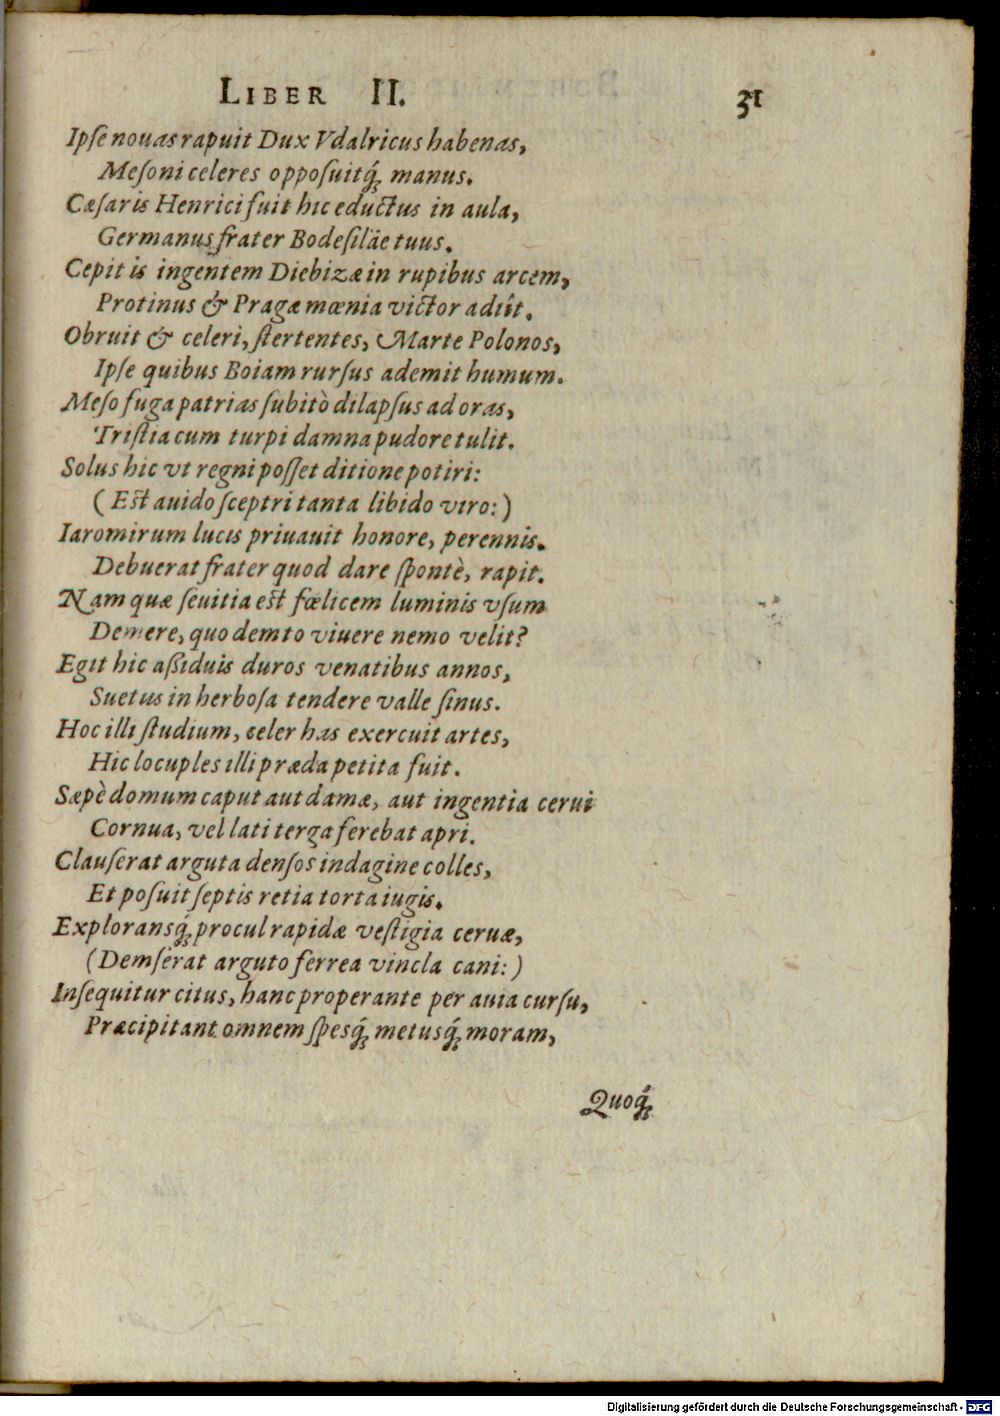 LIBER II. 31
Ipſe nouas rapuit Dux Vdalricus habenas,
Meſoni celeres oppoſuitq́ꝫ manus.
Cæſaris Henrici fuit hic eductus in aula,
Germanus frater Bodeſilӓe tuus.
Cepit is ingentem Diebizæ in rupibus arcem,
Protinus & Pragæ mœnia victor adiît.
Obruit & celeri, ſtertentes, Marte Polonos,
Ipſe quibus Boiam rurſus ademit humum.
Meſo fuga patrias ſubitò dilapſus ad oras,
Triſtia cum turpi damna pudore tulit.
Solus hic vt regni poſſet ditione potiri:
(Eſt auido ſceptri tanta libido viro:)
Iaromirum lucis priuauit honore, perennis.
Debuerat frater quod dare ſpontè, rapit.
Nam quæ ſeuitia eſt fœlicem luminis vſum
Demere, quo demto viuere nemo velit?
Egit hic aſſiduis duros venatibus annos,
Suetus in herboſa tendere valle ſinus.
Hoc illi ſtudium, celer has exercuit artes,
Hic locuples illi præda petita fuit.
Sæpè domum caput aut damæ, aut ingentia cerui
Cornua, vel lati terga ferebat apri.
Clauſerat arguta denſos indagine colles,
Et poſuit ſeptis retia torta iugis.
Exploransq́ꝫ procul rapidæ veſtigia ceruæ,
(Demſerat arguto ferrea vincla cani:)
Inſequitur citus, hanc properante per auia curſu,
Præcipitant omnem ſpesq́ꝫ metusq́ꝫ moram,
Quoq́ꝫ
Digitalisierung gefördert durch die Deutsche Forschungsgemeinschaft - DFG